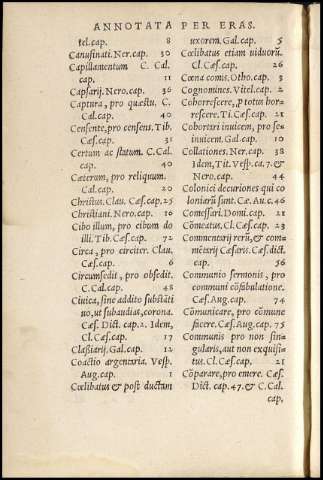 ANNOTATA PER ERAS.
tel.cap. 8
Canusinati. Ner.cap. 30
Capillamentum C. Cal.
cap. 11
Capsarij. Nero.cap. 36
Captura, pro quæstu. C.
Cal.cap. 40
Censente, pro censens. Tib.
Cæs.cap. 31
Certum ac statum. C.Cal.
cap. 40
Cæterum, pro reliquum.
Cal.cap. 20
Christus. Clau. Cæs.cap. 25
Christiani. Nero.cap. 16
Cibo illum, pro cibum do
illi. Tib.Cæs.cap. 72
Circa, pro circiter. Clau.
Cæs.cap. 6
Circumsedit, pro obsedit.
C.Cal.cap. 48
Ciuica, sine addito substāti
uo, ut subaudias, corona.
Cæs. Dict. cap.2. Idem,
Cl. Cæs.cap. 17
Classiarij. Gal.cap. 12
Coactio argentaria. Vesp.
Aug.cap. 1
Cœlibatus & post ductam
uxorem. Gal.cap. 5
Cœlibatus etiam uiduorū.
Cl.Cæs.cap. 26
Cœna comis. Otho.cap. 3
Cognomines. Vitel.cap. 2
Cohorrescere, p totus hor-
rescere. Ti.Cæs.cap. 21
Cohortari inuicem, pro se-
inuicem. Gal.cap. 10
Collationes. Ner.cap. 38
Idem, Tit. Vesp.ca.7. &
Nero.cap. 44
Colonici decuriones qui co
loniarū sunt. Cæ. Au.c. 46
Comessari. Domi.cap. 21
Cōmeatus. Cl.Cæs.cap. 23
Commentarij rerū, & com-
mētarij Cæsaris. Cæs. dict.
cap. 56
Communio sermonis, pro
communi cōfabulatione.
Cæs.Aug.cap. 74
Cōmunicare, pro cōmune
facere. Cæs. Aug.cap. 75
Communis pro non sin-
gularis, aut non exquisi-
tus. Cl.Cæs.cap. 21
Cōparare, pro emere. Cæs.
Dict. cap.47. & C.Cal.
cap,